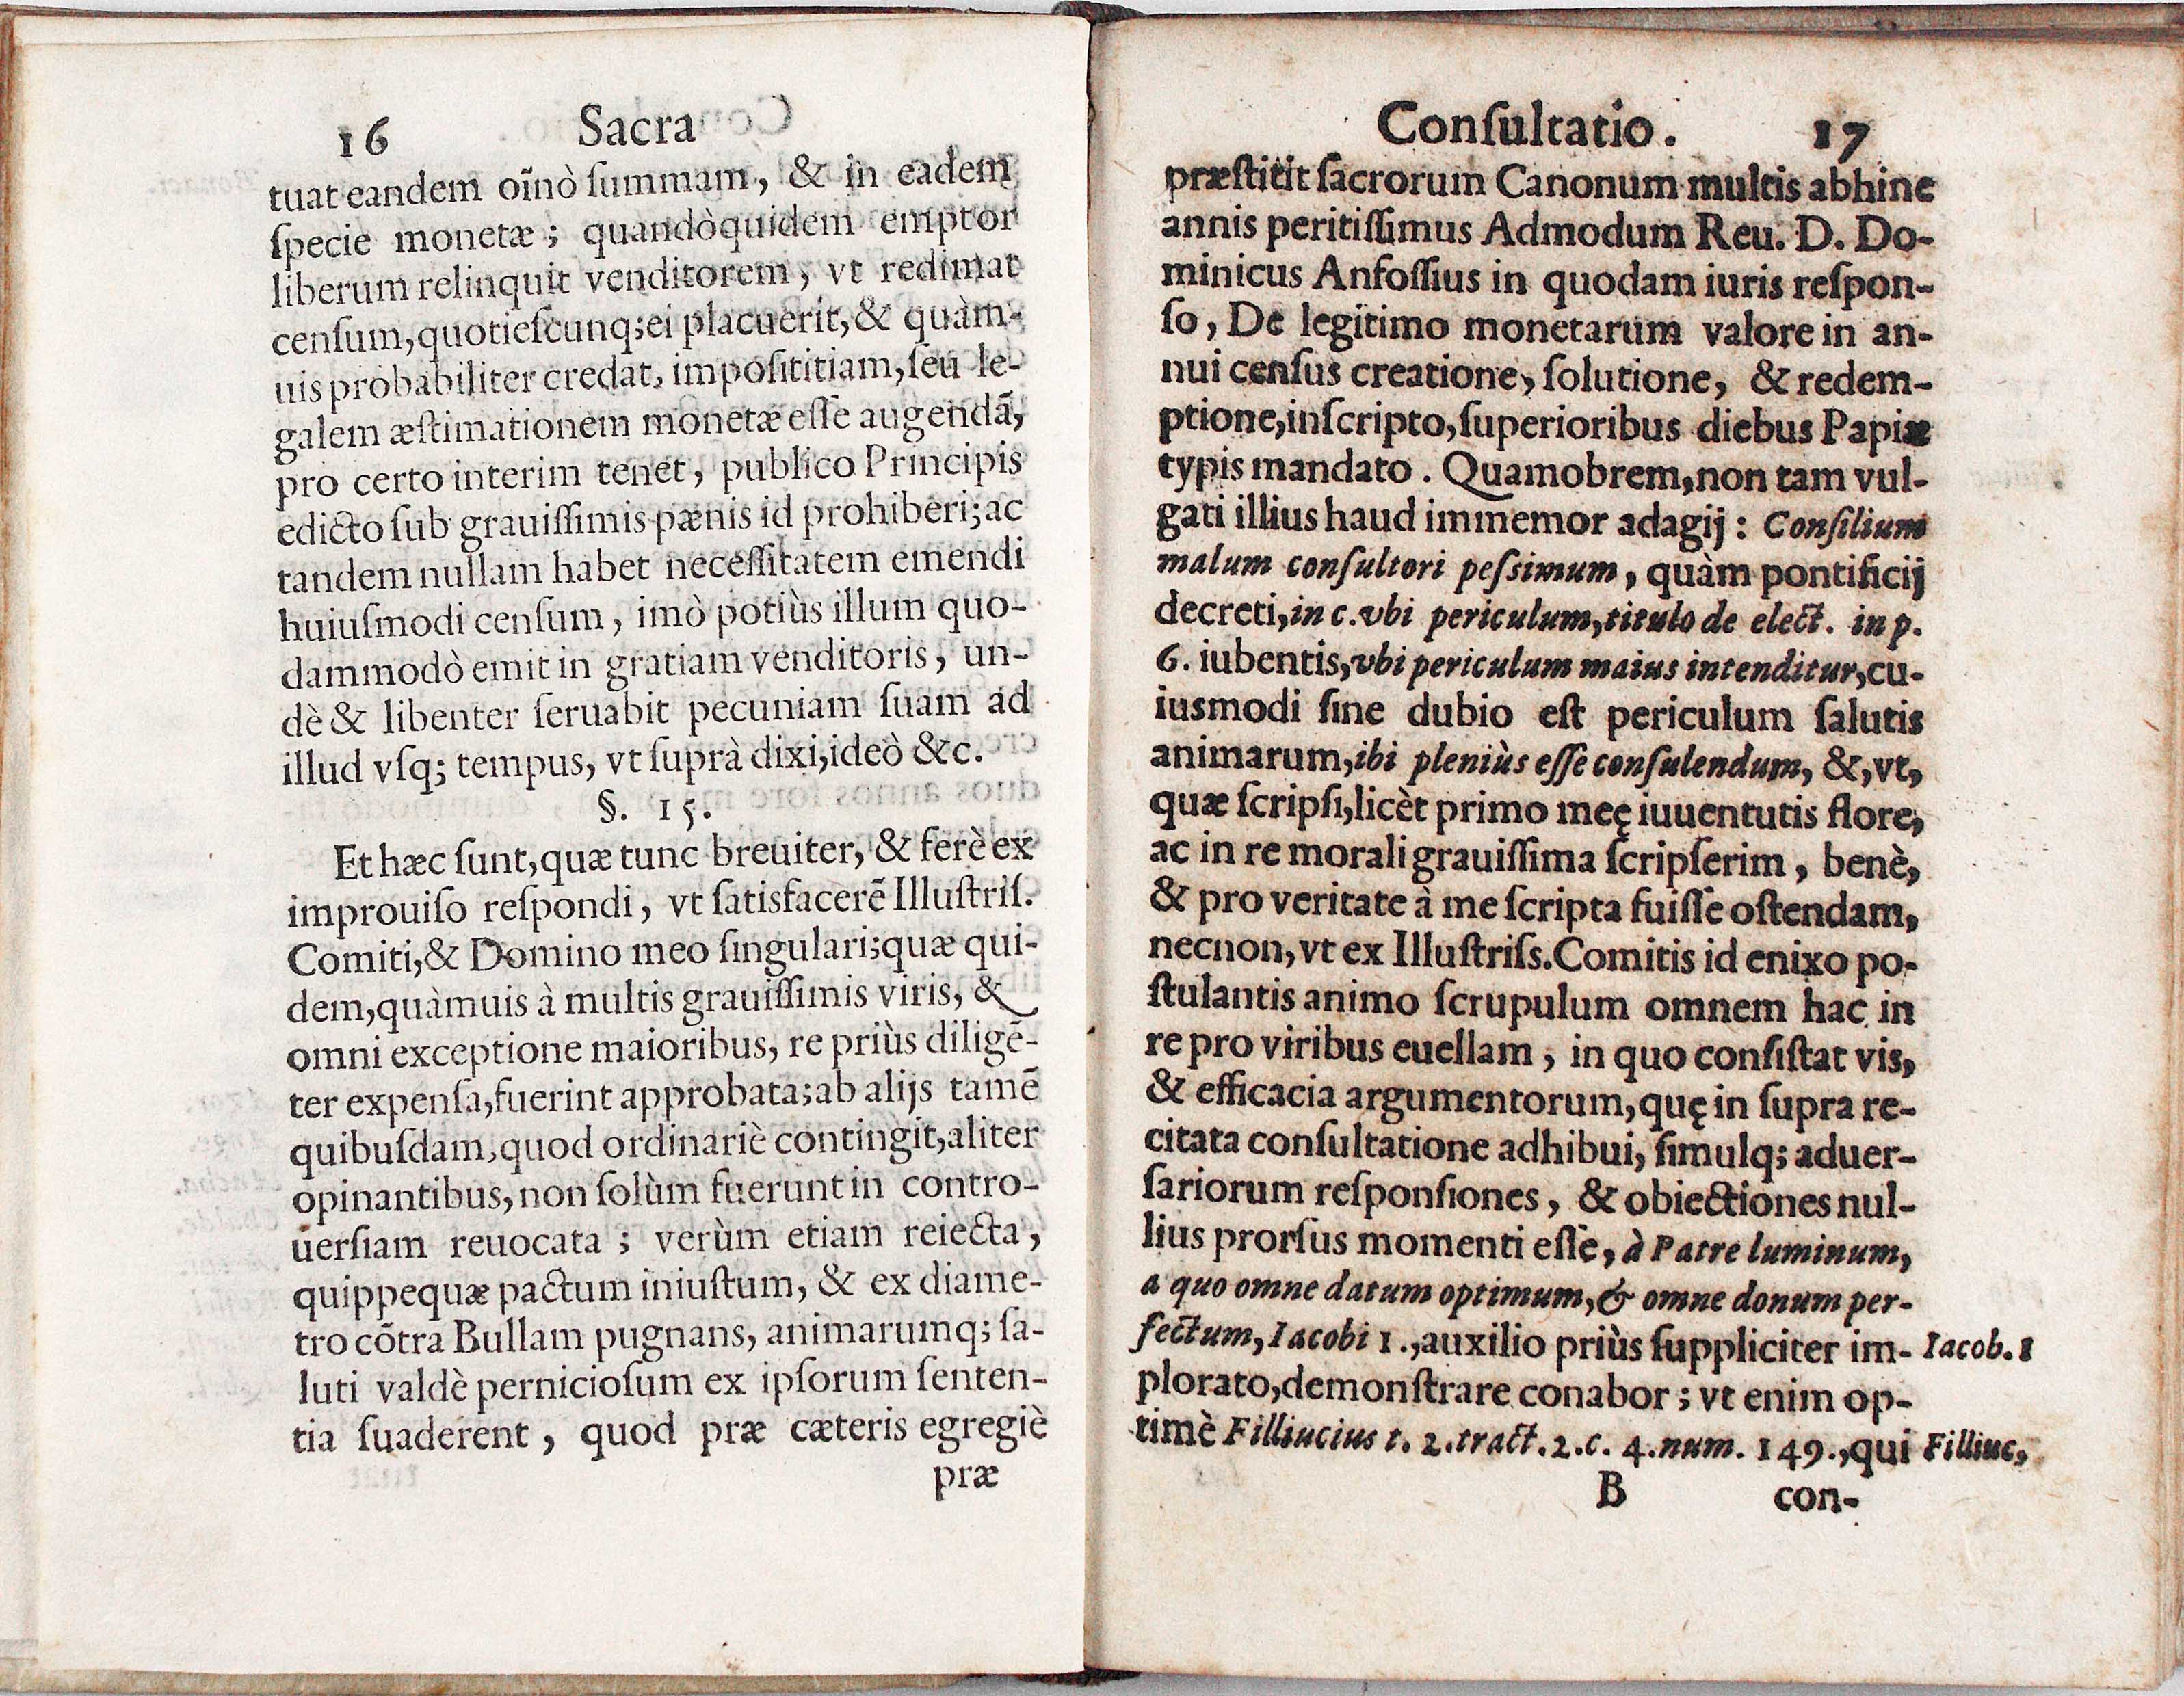 16 Sacra
tuat eandem oĩnò ſummam, & in eadem
ſpecie monetæ; quandòquidem emptor
liberum relinquit venditorem, vt redimat
cenſum, quotieſcunq; ei placuerit, & quàm-
uis probabiliter credat, impoſititiam, ſeu le-
galem æſtimationem monetæ eſſe augendã,
pro certo interim tenet, publico Principis
edicto ſub grauiſſimis pænis id prohiberi; ac
tandem nullam habet neceſſitatem emendi
huiuſmodi cenſum, imò potiùs illum quo-
dammodò emit in gratiam venditoris, un-
dè & libenter ſeruabit pecuniam ſuam ad
illud vſq; tempus, vt ſuprà dixi, ideò &c.
§. 15.
Et hæc ſunt, quæ tunc breuiter, & ferè ex
improuiſo reſpondi, vt ſatisfacerẽ Illuſtriſ.
Comiti, & Domino meo ſingulari; quæ qui-
dem, quàmuis à multis grauiſſimis viris, &
omni exceptione maioribus, re priùs diligẽ-
ter expenſa, fuerint approbata; ab alijs tamẽ
quibuſdam, quod ordinariè contingit, aliter
opinantibus, non ſolùm fuerunt in contro-
uerſiam reuocata; verùm etiam reiecta,
quippequæ pactum iniuſtum, & ex diame-
tro cõtra Bullam pugnans, animarumq; ſa-
luti valdè pernicioſum ex ipſorum ſenten-
tia ſuaderent, quod præ cæteris egregiè
præ
Conſultatio. 17
præſtitit ſacrorum Canonum multis abhinc
annis peritiſſimus Admodum Reu. D. Do-
minicus Anfoſſius in quodam iuris reſpon-
ſo, De legitimo monetarum valore in an-
nui cenſus creatione, ſolutione, & redem-
ptione, inſcripto, ſuperioribus diebus Papiæ
typis mandato. Quamobrem, non tam vul-
gati illius haud immemor adagij: Conſilium
malum conſultori peſsimum, quàm pontificij
decreti, in c. vbi periculum, titulo de elect. in p.
6. iubentis, vbi periculum maius intenditur, cu-
iusmodi ſine dubio eſt periculum ſalutis
animarum, ibi pleniùs eſſe conſulendum, &, vt,
quæ ſcripſi, licèt primo meę iuuentutis flore,
ac in re morali grauiſſima ſcripſerim, benè,
& pro veritate à me ſcripta fuiſſe oſtendam,
necnon, vt ex Illuſtriſs. Comitis id enixo po-
ſtulantis animo ſcrupulum omnem hac in
re pro viribus euellam, in quo conſiſtat vis,
& efficacia argumentorum, quę in ſupra re-
citata conſultatione adhibui, ſimulq; aduer-
ſariorum reſponſiones, & obiectiones nul-
lius prorſus momenti eſſe, à Patre luminum,
a quo omne datum optimum, & omne donum per-
fectum, Iacobi 1., auxilio priùs ſuppliciter im- Iacob. 1
plorato, demonſtrare conabor; vt enim op-
timè Filliucius t. 2. tract. 2. c. 4. num. 149., qui Filliuc,
B con-